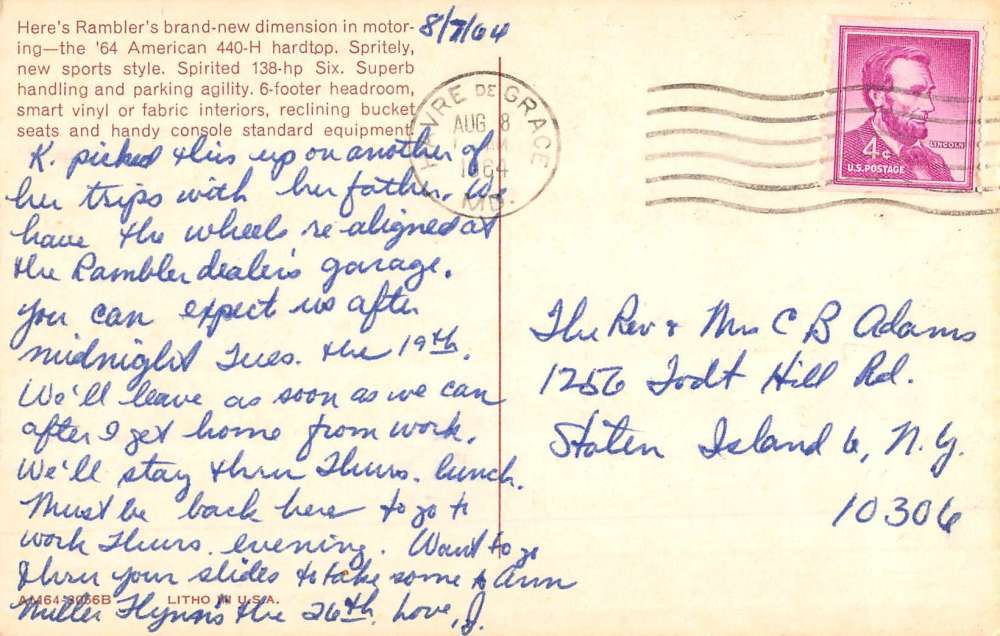 Here's Rambler's brand-new dimension in motor-
ing—the '64 American 440-H hardtop. Spritely,
new sports style. Spirited 138-hp Six. Superb
handling and parking agility. 6-footer headroom,
smart vinyl or fabric interiors, reclining bucket
seats and handy console standard equipment.
8/7/64
K. picked this up on another of
her trips with her father. We
have the wheels re-aligned at
the Rambler dealer's garage.
You can expect us after
midnight Tues. the 19th.
We'll leave as soon as we can
after I get home from work.
We'll stay thru Thurs. lunch.
Must be back here to go to
work Thurs. evening. Want to go
thru your slides to take some to Ann
Miller Flynn's the 26th. Love, J.
AM64-8066B LITHO IN U.S.A.
HAVRE DE GRACE
AUG 8
1964
MD.
LINCOLN
4¢
U.S. POSTAGE
The Rev & Mrs C B Adams
1256 Todt Hill Rd.
Staten Island 6, N.Y.
10306